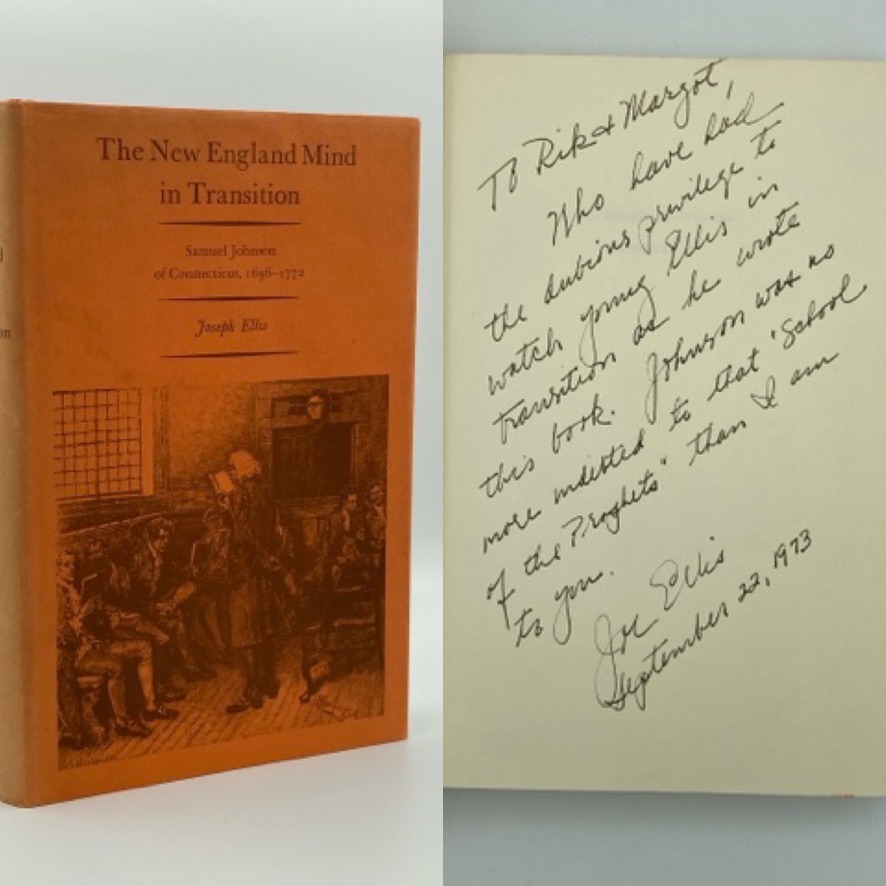 The New England Mind
in Transition
Samuel Johnson
of Connecticut, 1696–1772
Joseph Ellis
on
To Rik & Margot,
Who have had
the dubious privilege to
watch young Ellis in
transition as he wrote
this book. Johnson was no
more indebted to that "School
of the Prophets" than I am
to you.
Joe Ellis
September 22, 1973